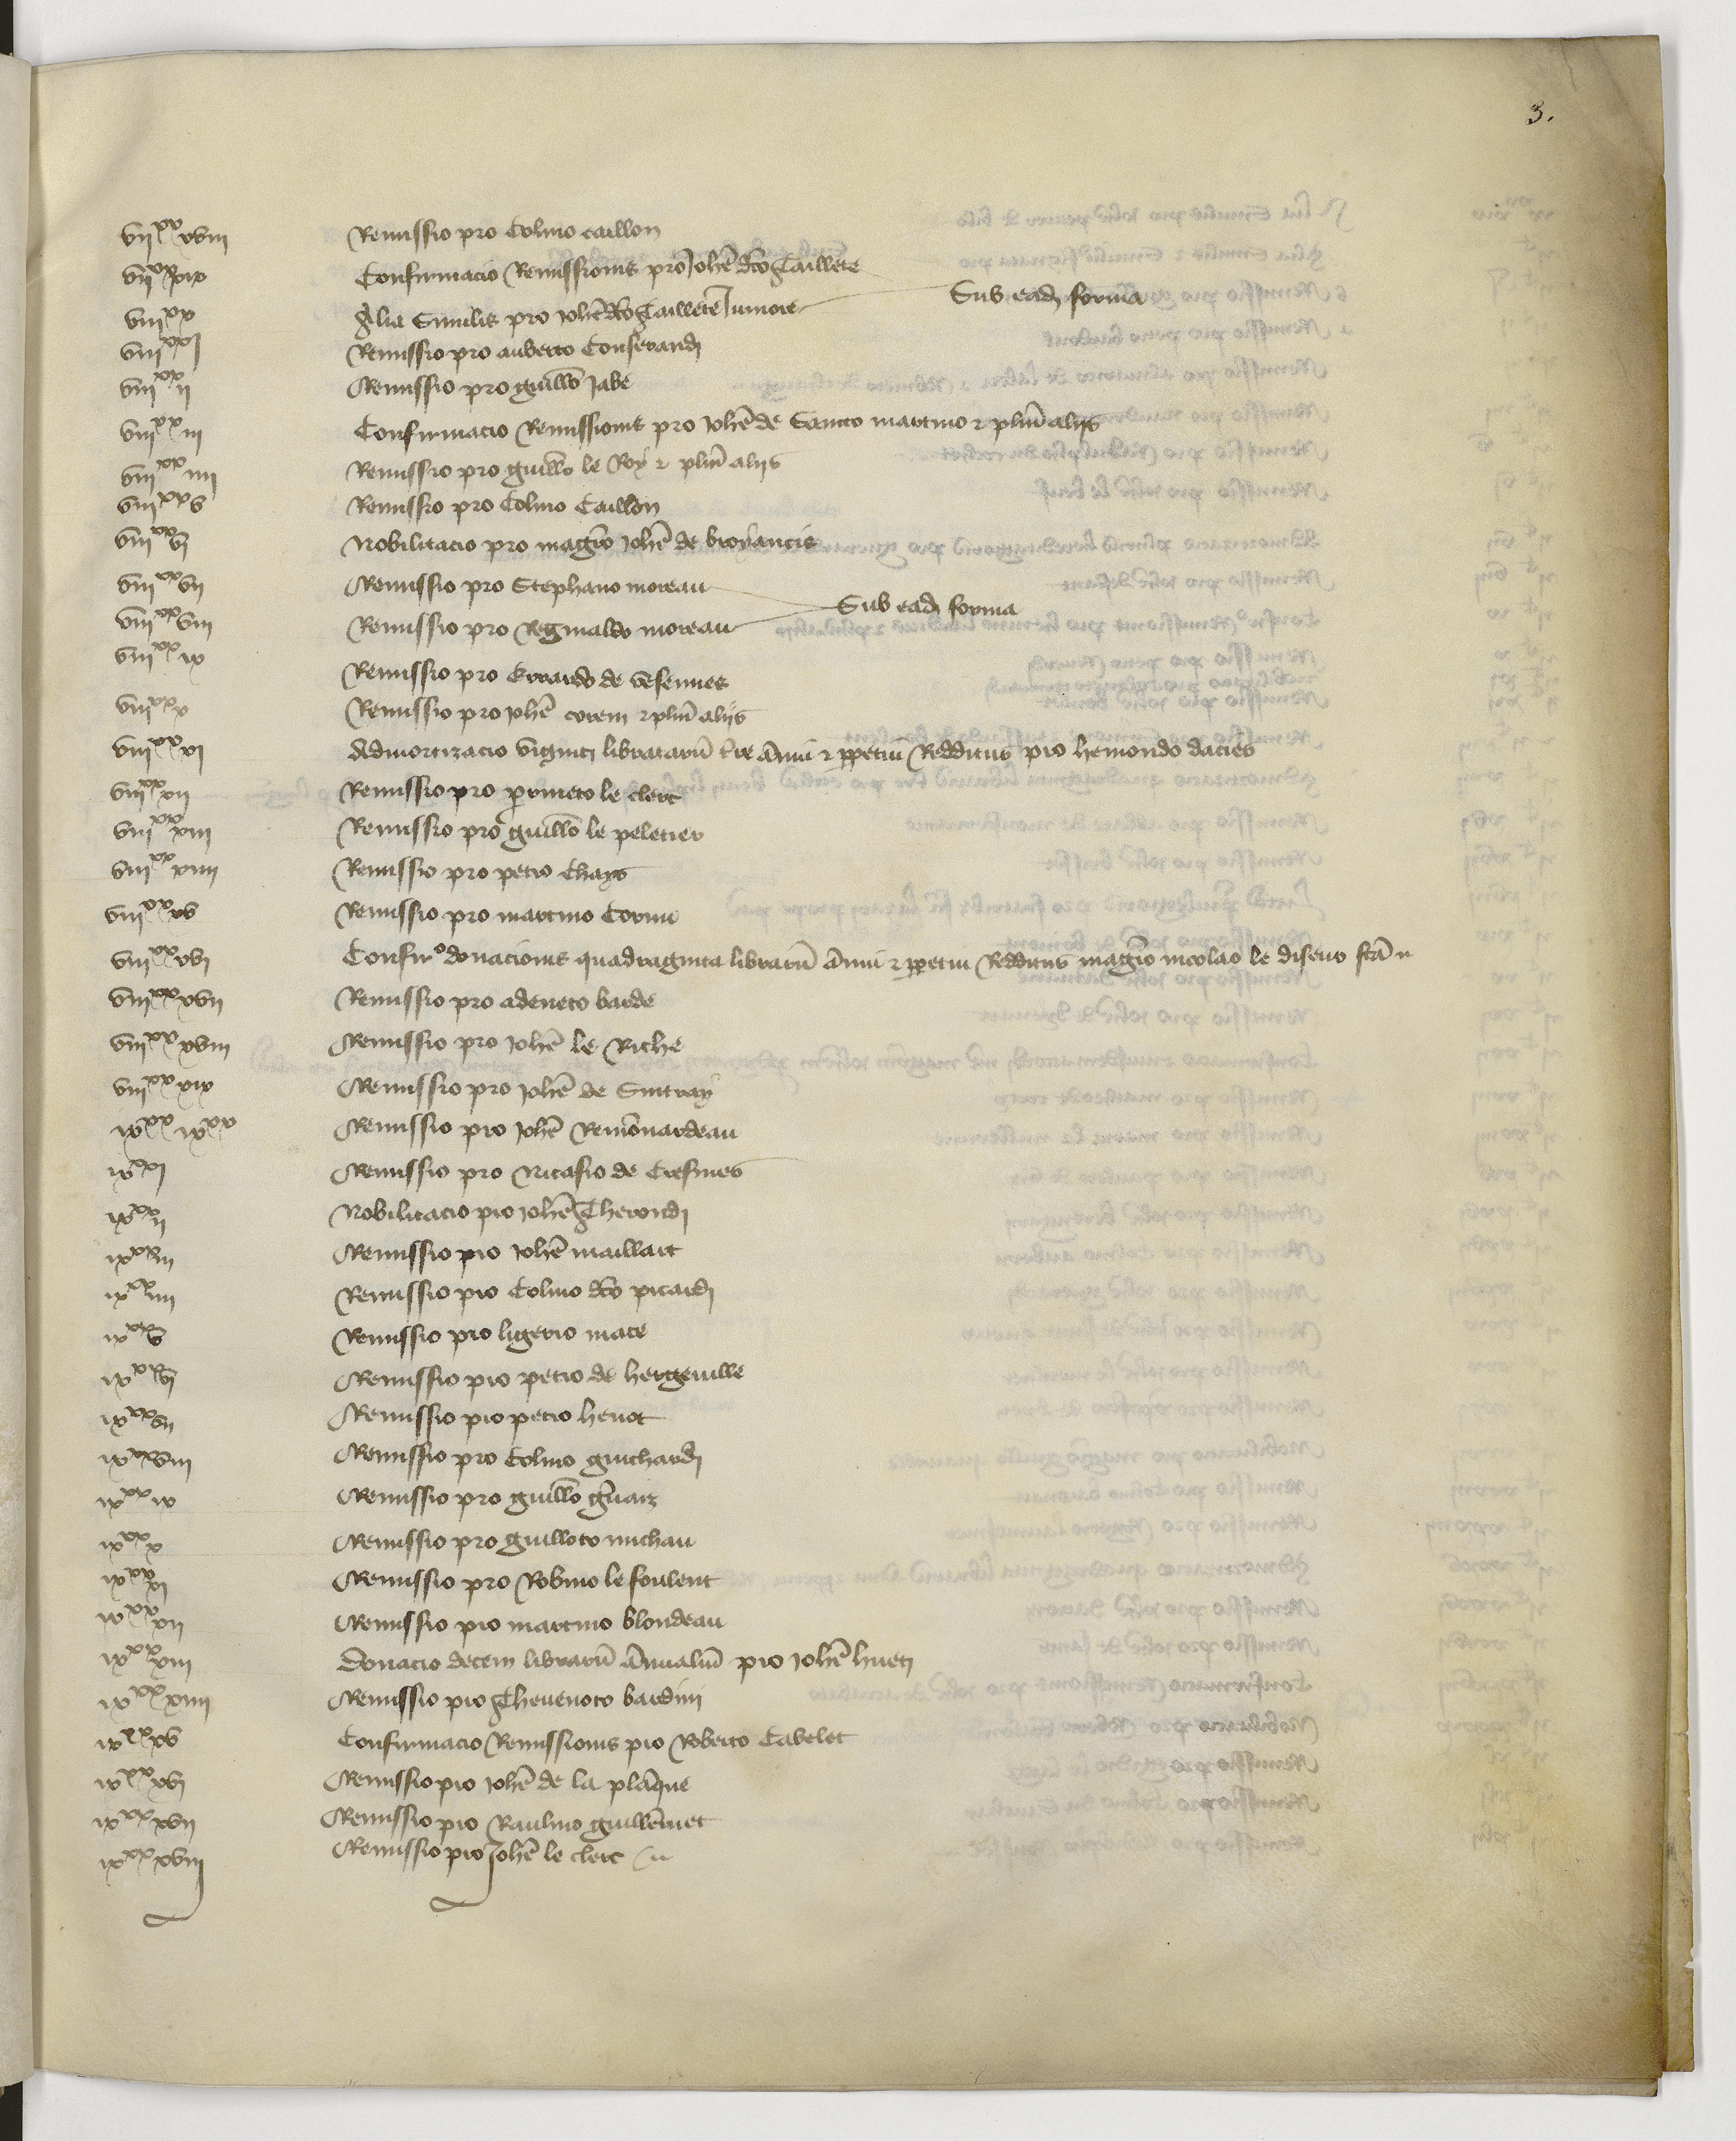 3.
vii^xx xviii Remissio pro Colino caillon
vii^xx xix Confirmacio Remissionis pro Joh̄e dc̄o Taillere
viii^xx Alia Similis pro Joh̄e dc̄o Taillere Juniore Sub ead̄ forma
viii^xx i Remissio pro auberto Conserandi
viii^xx ii Remissio pro guill̄o Jabe
viii^xx iii Confirmacio Remissionis pro Joh̄e de Sancto martino ⁊ plur̄ alijs
viii^xx iiii Remissio pro guill̄o le Roy ⁊ plur̄ alijs
viii^xx v Remissio pro Colino Caillon
viii^xx vi Nobilitacio pro magr̄o Joh̄e de
viii^xx vii Remissio pro Stephano moreau
viii^xx viii Remissio pro Reginaldo moreau Sub ead̄ forma
viii^xx ix Remissio pro Evrardo de
viii^xx x Remissio pro Joh̄e ⁊ plur̄ alijs
viii^xx xi Admortizacio viginti libratarū t̄re ānui ⁊ ꝑpetui Redditus pro hemondo dacies
viii^xx xii Remissio pro perineto le clerc
viii^xx xiii Remissio pro guill̄o le peletier
viii^xx xiiii Remissio pro petro Chays
viii^xx xv Remissio pro martino Cornu
viii^xx xvi Confir^o donacionis quadraginta librarū ānui ⁊ ꝑpetui Redditus magr̄o nicolao le diseur
viii^xx xvii Remissio pro adeneto barde
viii^xx xviii Remissio pro Joh̄e le Riche
viii^xx xix Remissio pro Joh̄e de Sintray
ix^xx ix^xx Remissio pro Joh̄e Remōnardeau
ix^xx i Remissio pro Nicasio de Cresmes
ix^xx ii Nobilitacio pro Joh̄e Therondi
ix^xx iii Remissio pro Joh̄e maillart
ix^xx iiii Remissio pro Colino dc̄o picardi
ix^xx v Remissio pro ligerio mace
ix^xx vi Remissio pro petro de hergeville
ix^xx vii Remissio pro petro henot
ix^xx viii Remissio pro Colino guichardi
ix^xx ix Remissio pro guill̄o
ix^xx x Remissio pro guilloto michau
ix^xx xi Remissio pro Robino le foulent
ix^xx xii Remissio pro martino blondeau
ix^xx xiii Donacio decem librarū ānualiū pro Joh̄e hueti
ix^xx xiiii Remissio pro Thevenoto bardini
ix^xx xv Confirmacio Remissionis pro Roberto Cavelet
ix^xx xvi Remissio pro Joh̄e de la plāque
ix^xx xvii Remissio pro Raulino guillēmet
ix^xx xviii Remissio pro Joh̄e le clerc